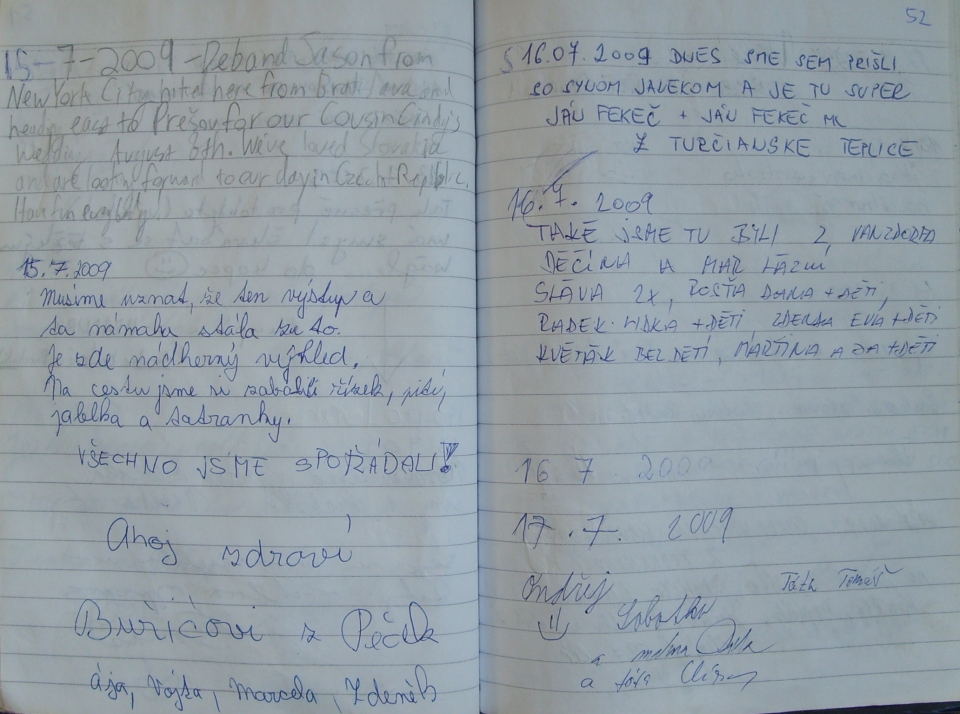 15-7-2009 - Deb and Jason from
New York City hiked here from Bratislava and
heading east to Prešov for our Cousin Cindy's
Wedding August 8th. We've loved Slovakia
and are lookin forward to our day in Czech Republic.
Have fun everybody
15.7.2009
Musíme uznat, že ten výstup a
ta námaha stála za to.
Je zde nádherný výhled.
Na cestu jsme si zabalili řízek, pití,
jablka a tatranky.
VŠECHNO JSME SPOŘÁDALI!
Ahoj zdraví
Buřičovi z Peček
Ája, Vojta, Marcela, Zdeněk
52
16.07.2009 DNES SME SEM PRIŠLI
SO SYNOM JANEKOM A JE TU SUPER
JÁN FEKEČ + JÁN FEKEČ ML
Z TURČIANSKE TEPLICE
16.7. 2009
TAKÉ JSME TU BYLI Z
DĚČÍNA A MAR LÁZNÍ
SLÁVA 2X, ROSŤA DANA + DĚTI,
RADEK LIDKA + DĚTI, ZDENDA EVA + DĚTI
KVĚTÁK BEZ DĚTÍ, MARTINA A + DĚTI
16 7 2009
17.7. 2009
Ondřej
Tomáš
Sobotka
a mama
a táta